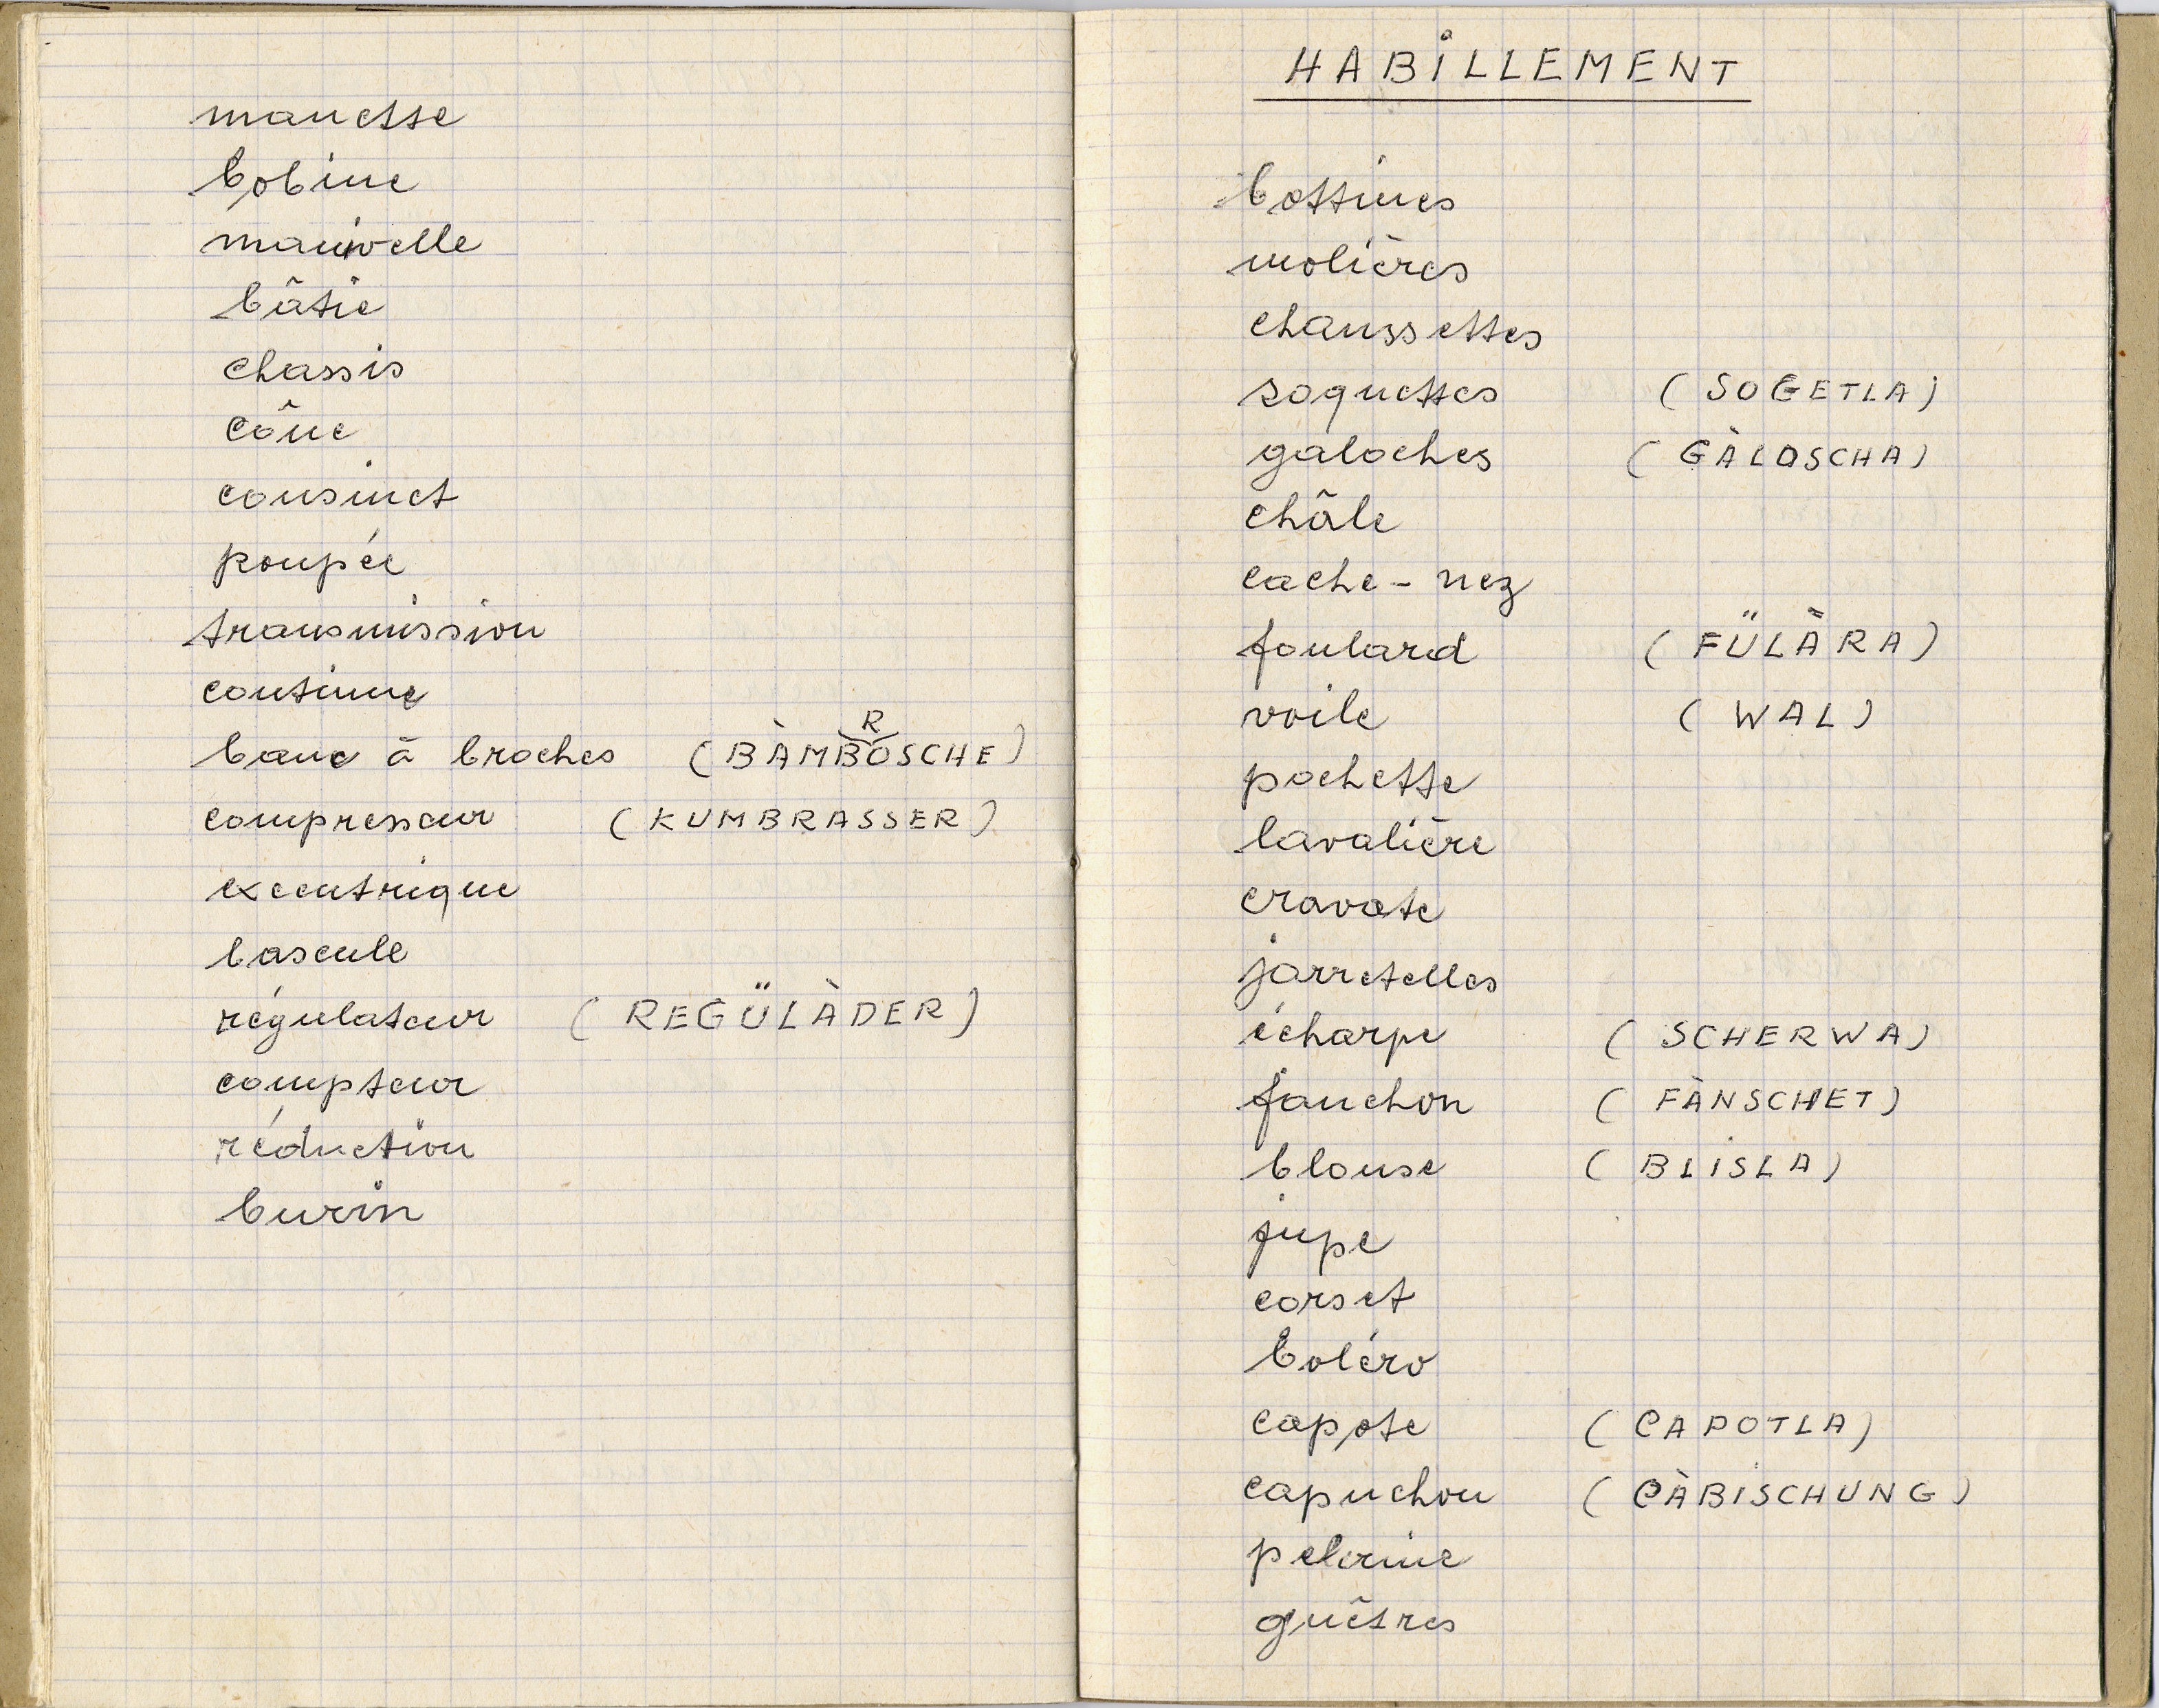 manette
bobine
manivelle
bâtie
chassis
cône
cousinet
poupée
transmission
continue
banc à broches (BÀMBROSCHE)
compresseur (KUMBRASSER)
excentrique
bascule
régulateur (REGÜLÀDER)
compteur
réduction
burin
HABILLEMENT
bottines
molières
chaussettes
soquettes (SOGETLA)
galoches (GÀLOSCHA)
châle
cache-nez
foulard (FÜLÀRA)
voile (WAL)
pochette
lavalière
cravate
jarretelles
écharpe (SCHERWA)
fanchon (FÀNSCHET)
blouse (BLISLA)
jupe
corset
boléro
capote (CAPOTLA)
capuchon (CÀBISCHUNG)
pelerine
guêtres